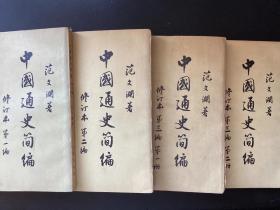 范文瀾著
中國通史简编
修订本 第一编
范文瀾著
中國通史简编
修订本 第二编
范文瀾著
中國通史简编
修订本 第三编
范文瀾著
中國通史简编
修订本 第